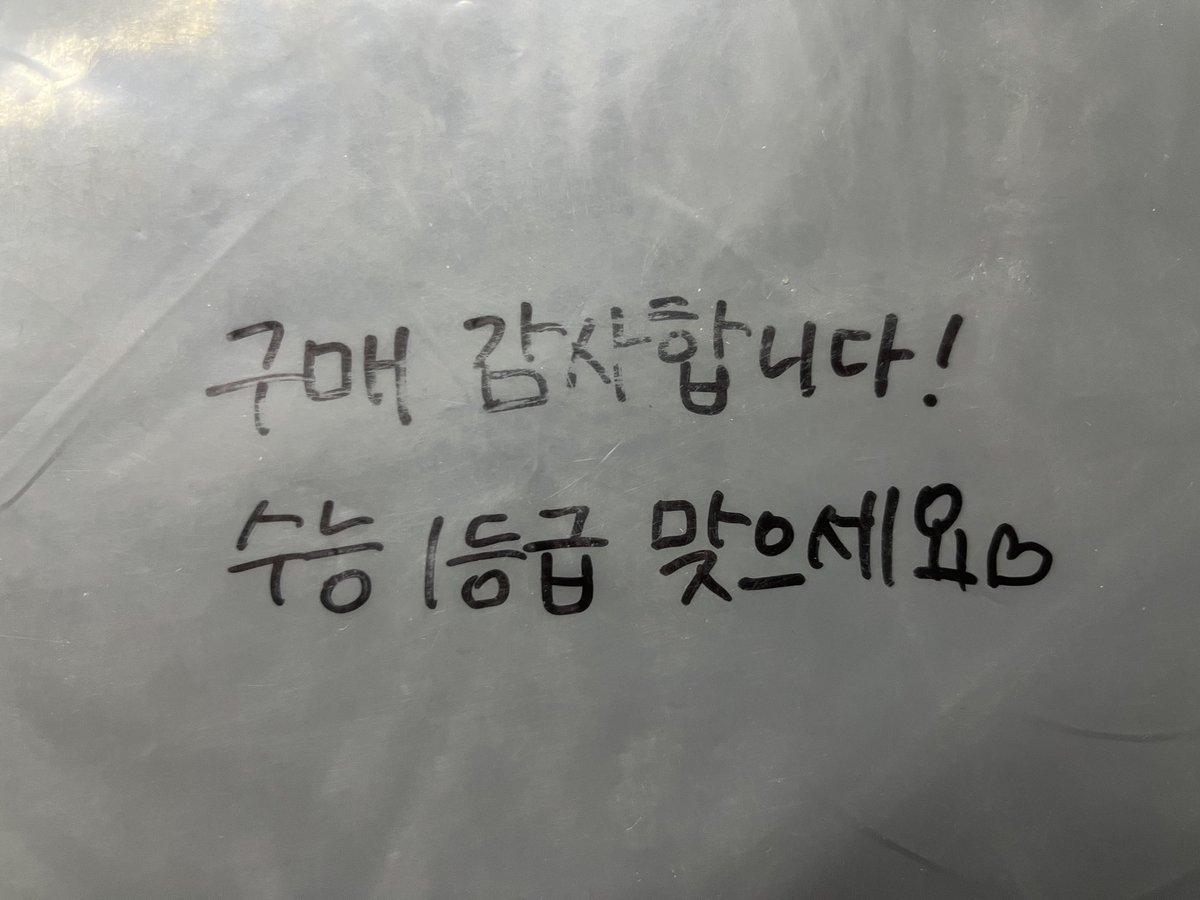 구매 감사합니다!
수능 1등급 맞으세요♡